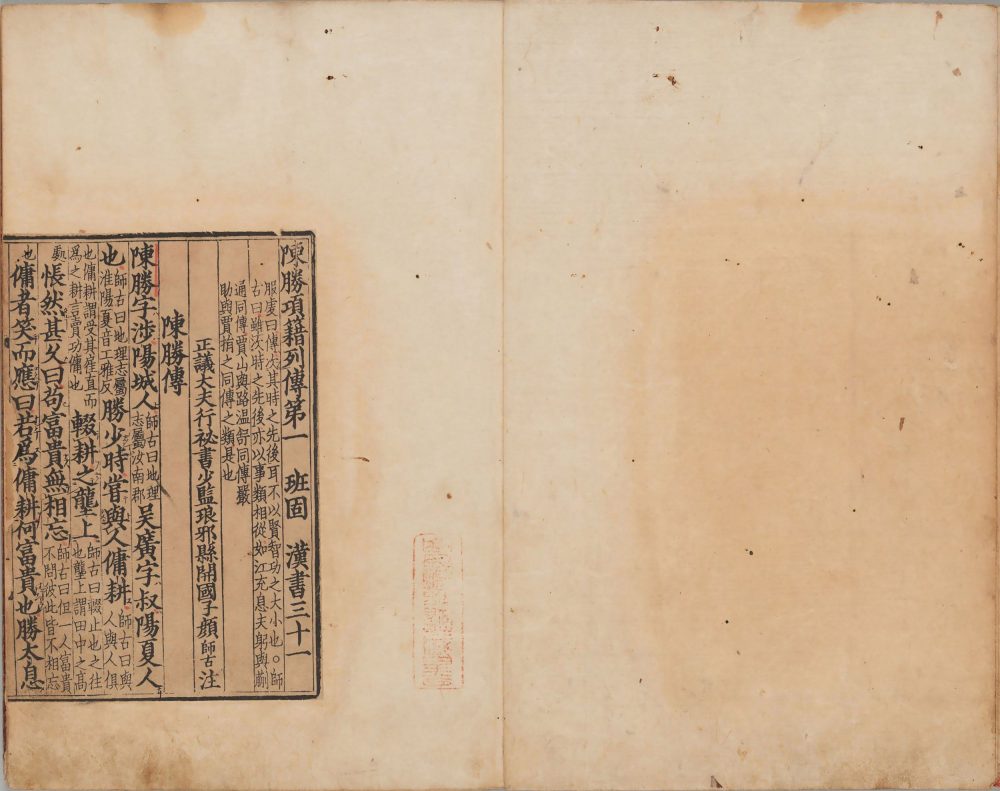 陳勝項籍列傳第一　班固　漢書三十一
服虔曰傳次其時之先後耳不以賢智功之大小也○師
古曰雖次時之先後亦以事類相從如江充息夫躬與蒯
通同傳賈山與路溫舒同傳嚴
助與賈捐之同傳之類是也
正議大夫行祕書少監琅邪縣開國子顔師古注
陳勝傳
陳勝字涉陽城人師古曰地理志屬汝南郡吳廣字叔陽夏人
也師古曰地理志屬淮陽夏音工雅反勝少時嘗與人傭耕師古曰與人與人俱
也傭耕謂受其雇直而爲之耕言賣功傭也輟耕之壟上師古曰輟止也之往也壟上謂田中之高
處悵然甚久曰苟富貴無相忘師古曰但一人富貴不問彼此皆不相忘
也傭者笑而應曰若爲傭耕何富貴也勝太息